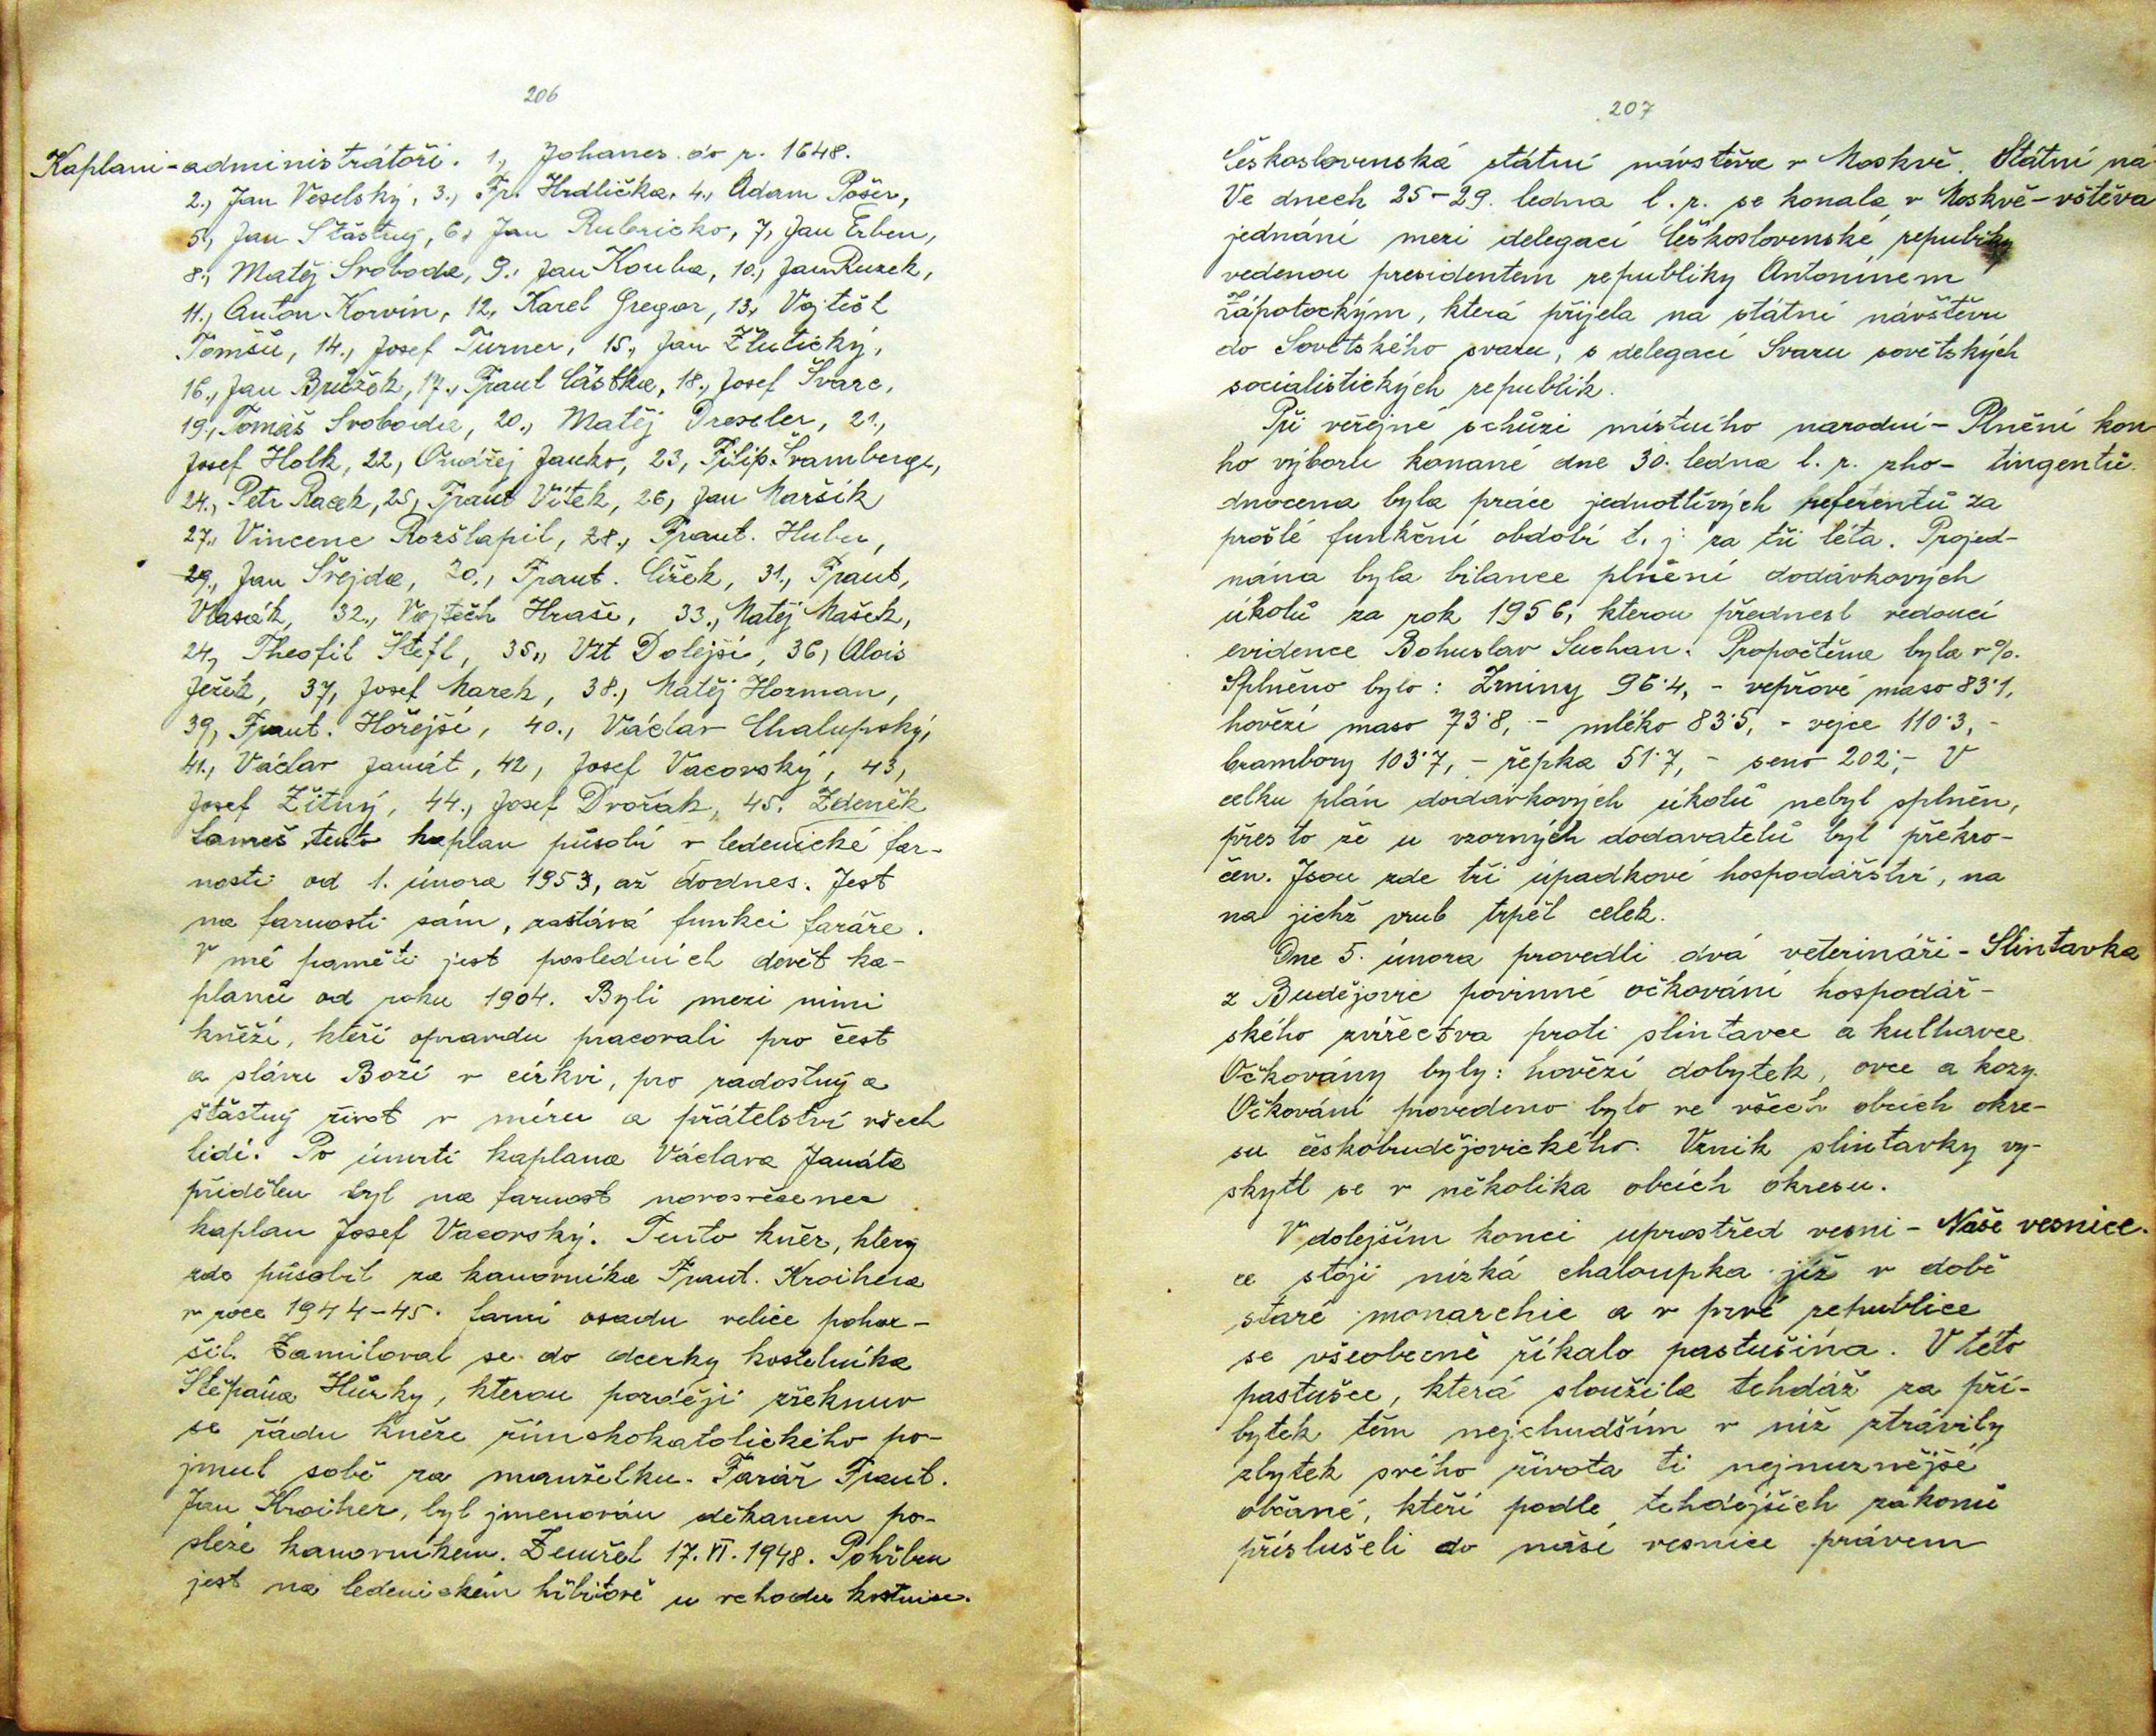 206
Kaplani-administrátoři. 1., Johanes do r. 1648.
2., Jan Veselský, 3., Fr. Hrdlička, 4., Adam Pošer,
5., Jan Šťástný, 6, Jan Rubricko, 7, Jan Erben,
8., Matěj Svoboda, 9., Jan Kouba, 10., Jan Ruzek,
11., Anton Korvín, 12, Karel Gregor, 13, Vojtěšt
Tomšů, 14., Josef Turner, 15., Jan Žlutický,
16., Jan Brůžek, 17., Frant Částka, 18., Josef Švarc,
19., Tomáš Svoboda, 20., Matěj Drexler, 21.,
Josef Holk, 22, Ondřej Janko, 23, Filip Švamberg,
24., Petr Racek, 25, Frant Vítek, 26, Jan Maršík
27., Vincenc Rozšlapil, 28., Frant. Huber,
29., Jan Šrejda, 30., Frant. Čížek, 31., Frant,
Vlasák, 32., Vojtěch Hraše, 33., Matěj Mašek,
24, Theofil Štefl, 35., Vít Dolejší, 36, Alois
Ježek, 37, Josef Marek, 38., Matěj Horman,
39, Frant. Hořejší, 40., Václav Chalupský,
41., Václav Janát, 42, Josef Vacovský, 43,
Josef Žitný, 44., Josef Dvořak, 45, Zdeněk
tento kaplan působí v ledenické far-
nosti od 1. února 1953, až dodnes. Jest
na farnosti sám, zastává funkci faráře.
V mé paměti jest posledních devět ka-
planů od roku 1904. Byli mezi nimi
kněží, kteří opravdu pracovali pro čest
a slávu Boží v církvi, pro radostný a
šťastný život v míru a přátelství všech
lidí. Po úmrtí kaplana Václava Janáta
přidělen byl na farnost novosvěcenec
kaplan Josef Vacovský. Tento kněz, který
zde působil za kanovníka Frant. Kroihera
v roce 1944-45. farní osadu velice pohor-
šil. Zamiloval se do dcerky kostelníka
Štěpána Hůrky, kterou později zřeknuv
se řádu kněze římskokatolického po-
jmul sobě za manželku. Farář Frant.
Jan Kroiher, byl jmenován děkanem po-
sléze kanovníkem. Zemřel 17. VI. 1948. Pohřben
jest na ledenickém hřbitově u vchodu kostnice.
207
Československá státní návstěva v Moskvě. Státní ná
Ve dnech 25-29. ledna t. r. se konala v Moskvě - vštěva
jednání mezi delegací Československé republiky
vedenou presidentem republiky Antonínem
Zápotockým, která přijela na státní návštěvu
do Sovětského svazu, s delegací Svazu sovětských
socialistických republik.
Při veřejné schůzi místního narodní - Plnění kon
ho výboru konané dne 30. ledna t. r. zho- tingentů.
dnocena byla práce jednotlivých referentů za
prošlé funkční období t. j. za tři léta. Projed-
nána byla bilance plnění dodávkových
úkolů za rok 1956, kterou přednesl vedoucí
evidence Bohuslav Suchan. Propočtěna byla v %.
Splněno bylo: Zrniny 96·4, - vepřové maso 83·1,
hovězí maso 73·8, - mléko 83·5, - vejce 110·3, -
brambory 103·7, - řepka 51·7, - seno 202·, - V
celku plán dodávkových úkolů nebyl splněn,
přes to že u vzorných dodavatelů byl překro-
čen. Jsou zde tři úpadkové hospodářství, na
na jichž vrub trpěl celek.
Dne 5. února provedli dvá veterináři - Slintavka
z Budějovic povinné očkování hospodář-
ského zvířectva proti slintavce a kulhavce
Očkovány byly: hovězí dobytek, ovce a kozy.
Očkování provedeno bylo ve všech obcích okre-
su českobudějovického. Vznik slintavky vy-
skytl se v několika obcích okresu.
V dolejším konci uprostřed vesni - Naše vesnice.
ce stojí nízká chaloupka již v době
staré monarchie a v prvé republice
se všeobecně říkalo pastušína. V této
pastušce, která sloužila tehdáž za pří-
bytek těm nejchudším v níž ztrávily
zbytek svého života ti nejnuznějšé
občané, kteří podle tehdejších zákonů
příslušeli do naší vesnice právem